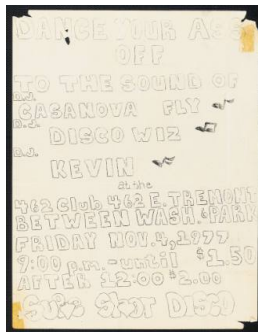 DANCE YOUR ASS
OFF
TO THE SOUND OF
D.J.
CASANOVA FLY
D.J.
DISCO WIZ
D.J.
KEVIN
at the
462 Club 462 E. TREMONT
BETWEEN WASH. & PARK
FRIDAY NOV. 4, 1977
9:00 p.m. - until $1.50
AFTER 12:00 $2.00
Sure Shot DISCO